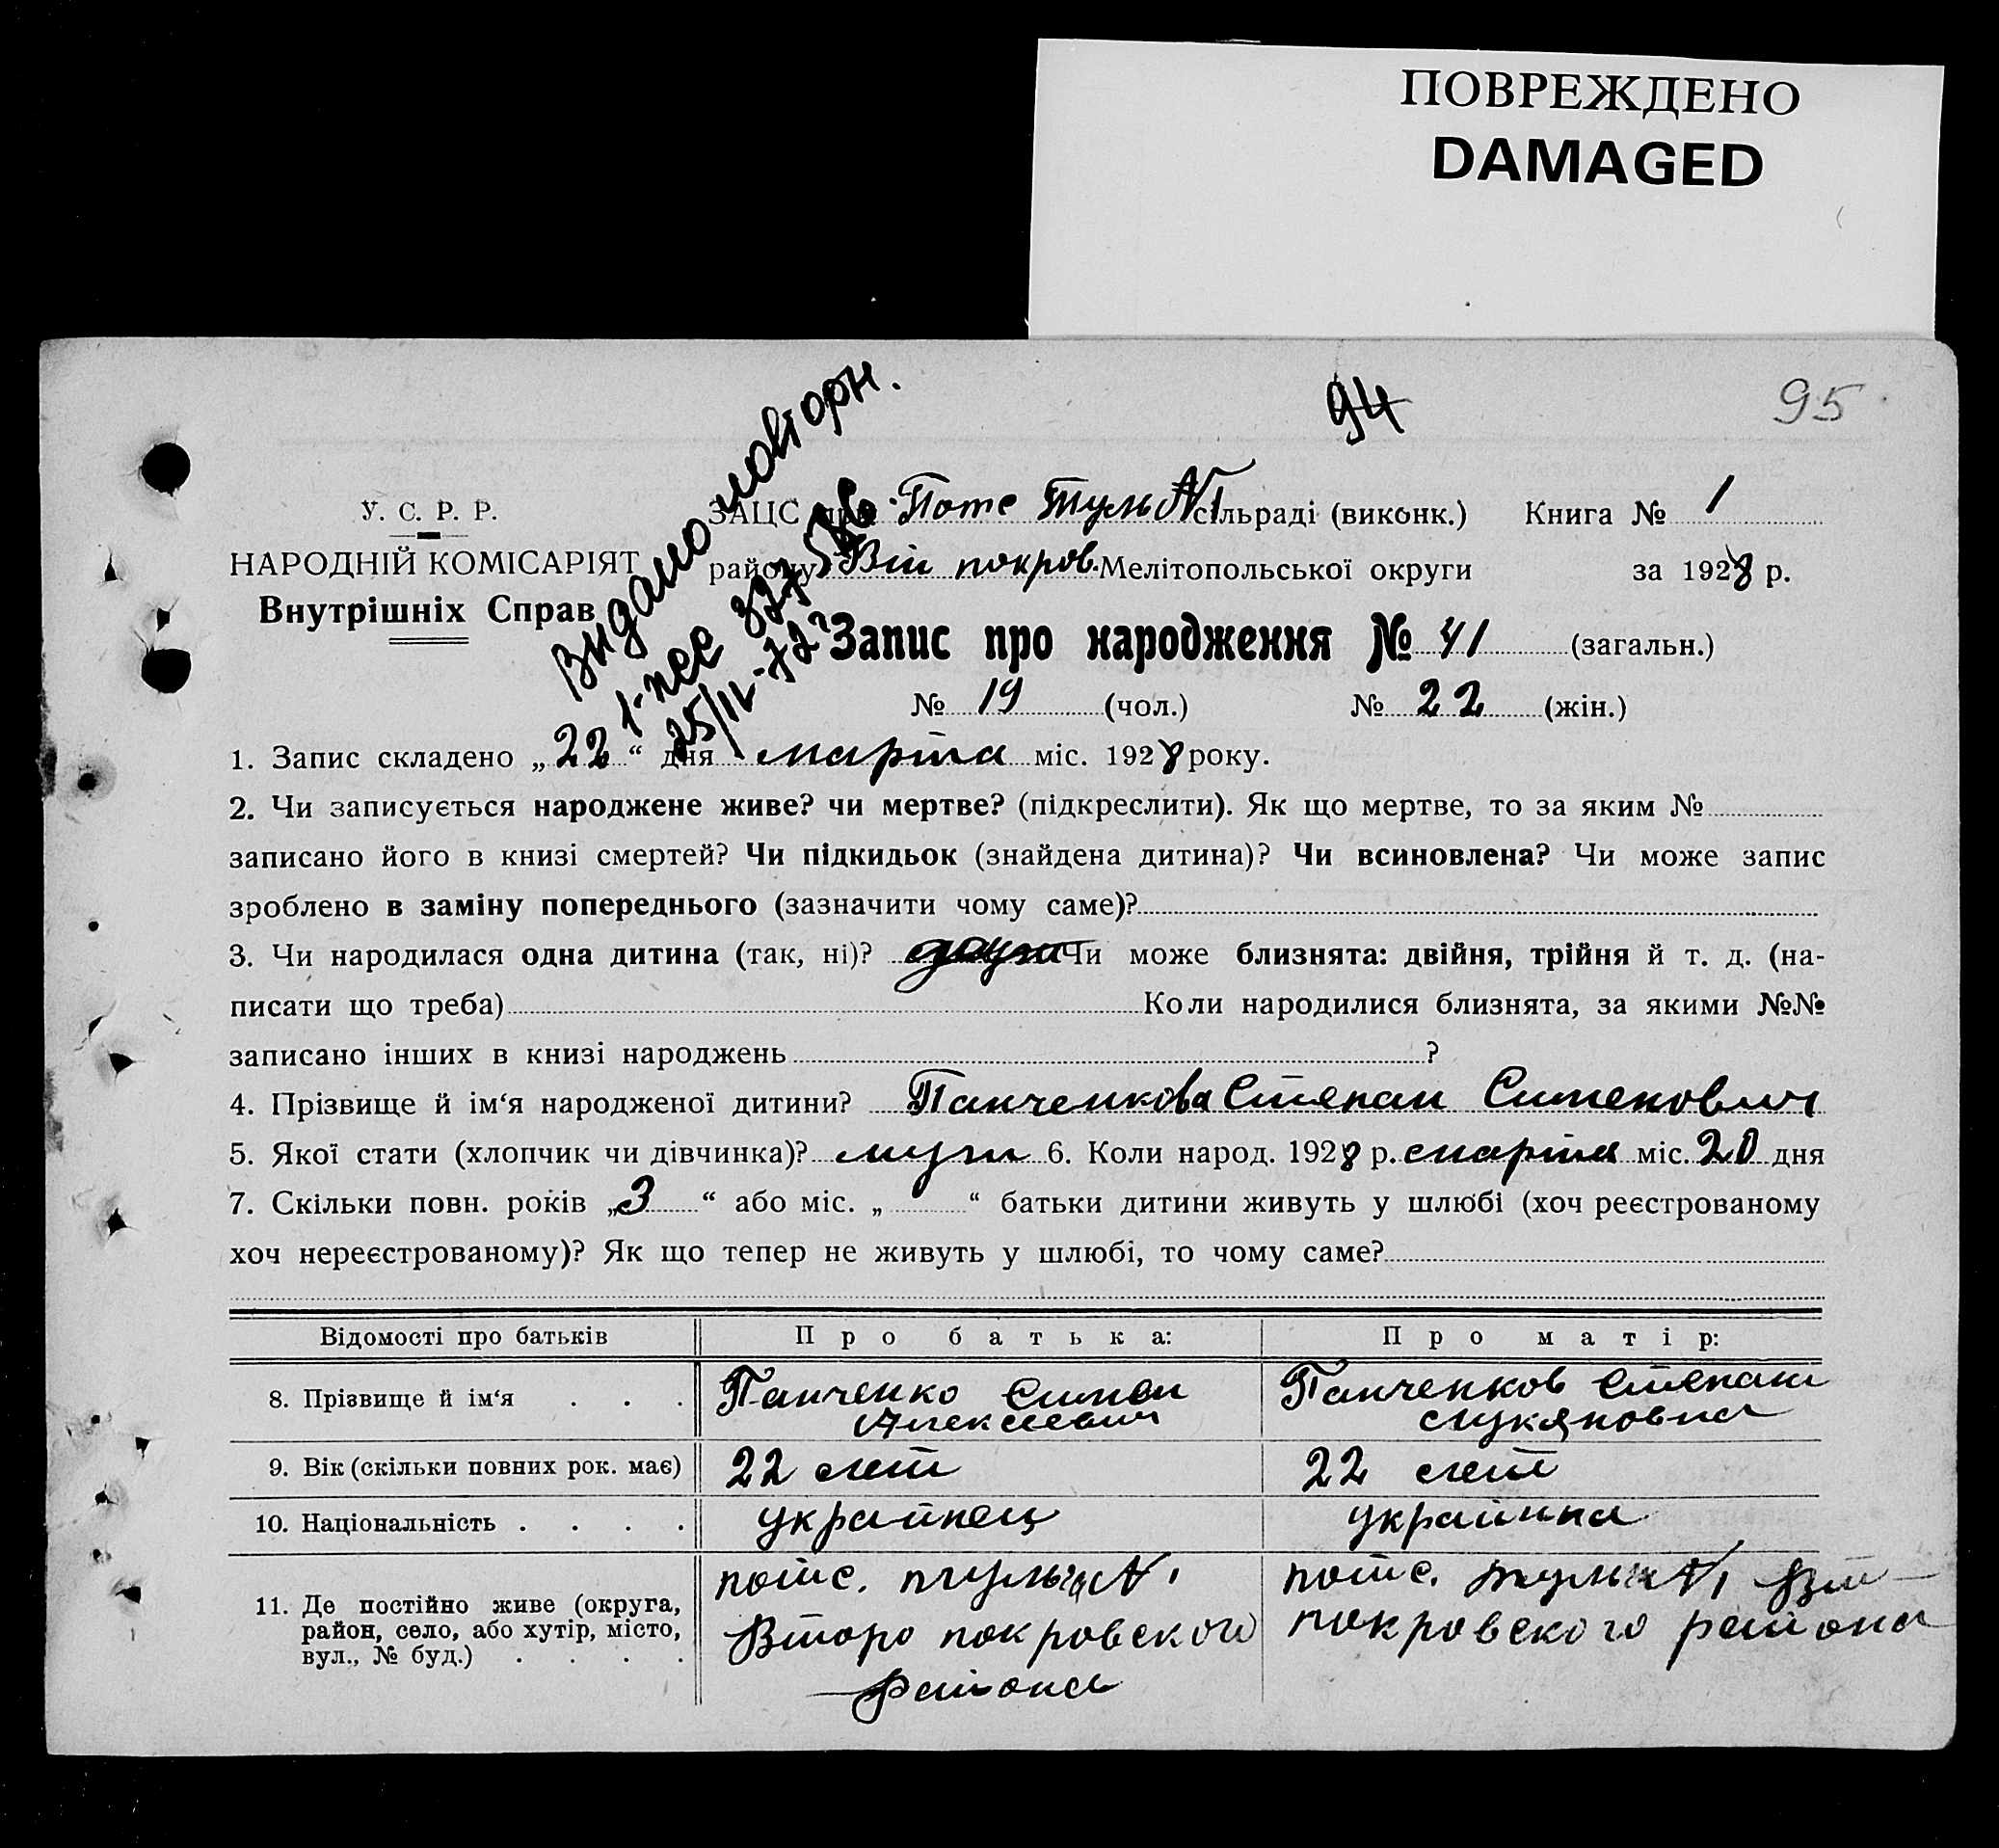 ПОВРЕЖДЕНО
DAMAGED
94
95
Видано повторн.
25/IV-72г
У. С. Р. Р.
НАРОДНІЙ КОМІСАРІЯТ
Внутрішніх Справ
ЗАЦС при Потс Туль №1 сільраді (виконк.) Книга № 1
району Вт покров. Мелітопольської округи за 1928 р.
Запис про народження № 41 (загальн.)
№ 19 (чол.) № 22 (жін.)
1. Запис складено „22“ дня марта міс. 1928 року.
2. Чи записується народжене живе? чи мертве? (підкреслити). Як що мертве, то за яким №
записано його в книзі смертей? Чи підкидьок (знайдена дитина)? Чи всиновлена? Чи може запис
зроблено в заміну попереднього (зазначити чому саме)?
3. Чи народилася одна дитина (так, ні)? Чи може близнята: двійня, трійня й т. д. (на-
писати що треба) Коли народилися близнята, за якими №№
записано інших в книзі народжень ?
4. Прізвище й ім‘я народженої дитини? Панченкова Степан Сименович
5. Якої стати (хлопчик чи дівчинка)? муж 6. Коли народ. 1928 р. марта міс. 20 дня
7. Скільки повн. років „3“ або міс. „ “ батьки дитини живуть у шлюбі (хоч реєстрованому
хоч нереєстрованому)? Як що тепер не живуть у шлюбі, то чому саме?
Відомості про батьків Про батька: Про матір:
8. Прізвище й ім‘я . . . Панченко Симен Алексеевич Панченков Степани Лукяновна
9. Вік (скільки повних рок. має) 22 лет 22 лет
10. Національність . . . . украинец украинка
11. Де постійно живе (округа,
район, село, або хутір, місто,
вул., № буд.) . . . .
потс. тульч №1
Второ покровского
района
потс. тульч №1 Вт
покровского района